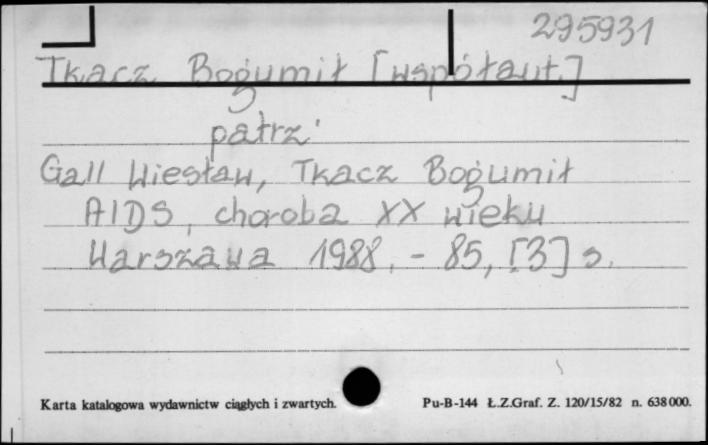 295931
Tkacz Bogumił [współaut.]
patrz:
Gall Wiesław, Tkacz Bogumił
AIDS, choroba XX wieku
Warszawa 1988. - 85, [3] s.
Karta katalogowa wydawnictw ciągłych i zwartych. Pu-B-144 Ł.Z.Graf. Z. 120/15/82 n. 638000.